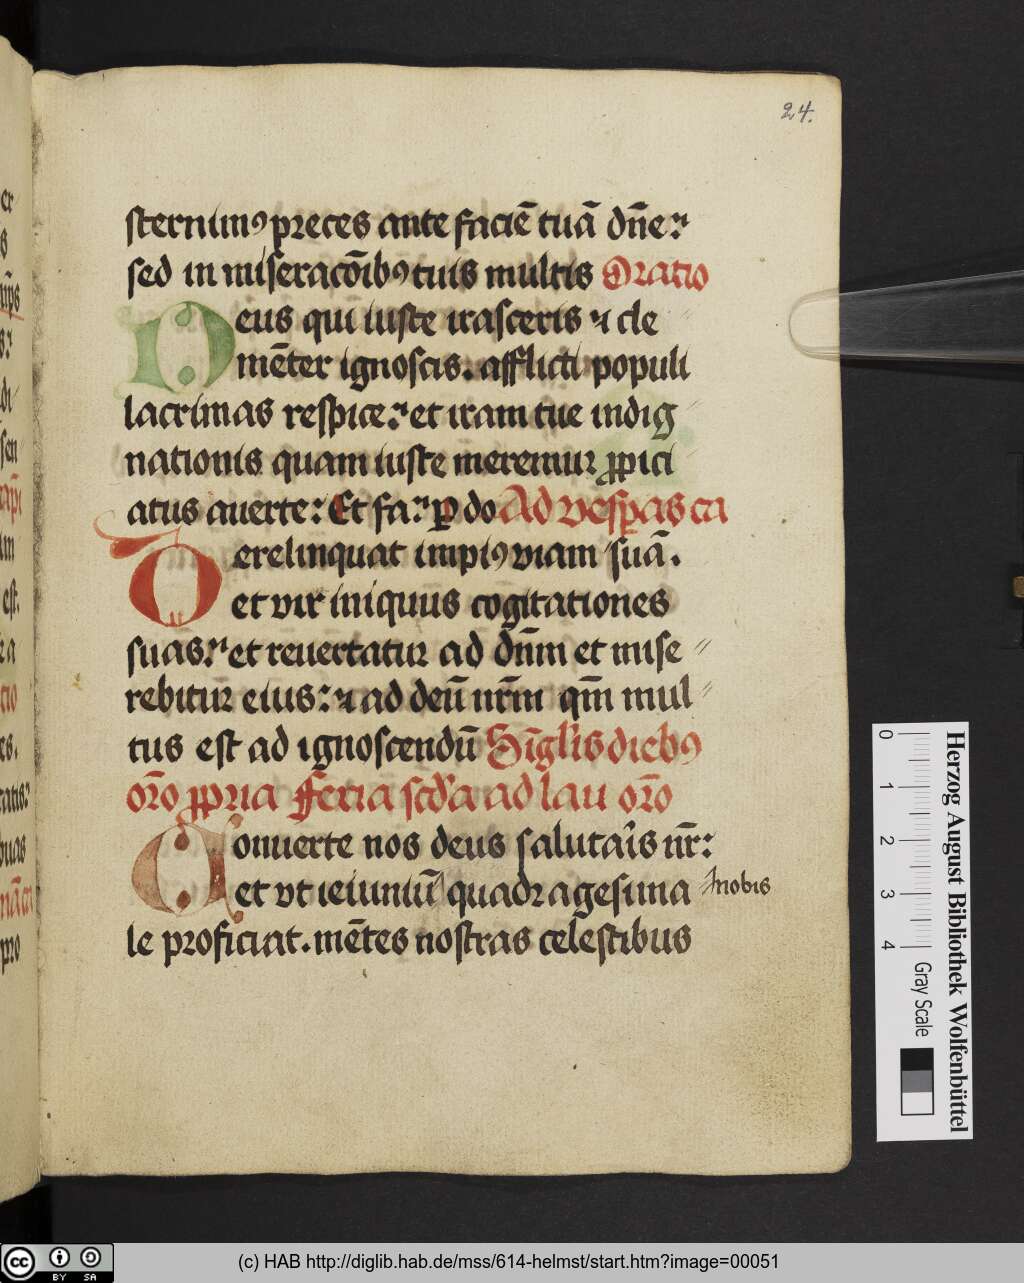 24.
sternimꝰ preces ante faciē tuā dn̄e:
sed in miseracōibꝰ tuis multis Oratio
Deus qui iuste irasceris ⁊ cle
mēter ignoscis. afflicti populi
lacrimas respice: et iram tue indig
nationis quam iuste meremur ꝓpici
atus auerte: Et fa: ꝑ do Ad vesꝑas ca
Derelinquat impiꝰ viam suā.
et vir iniquus cogitationes
suas: et reuertatur ad dn̄m et mise
rebitur eius: ⁊ ad deū nr̄m qm̄ mul
tus est ad ignoscendū Sīgl'is diebꝰ
or̄o ꝓpria Feria scd'a ad lau or̄o
Conuerte nos deus salutar̄is nr̄:
et vt ieiuniū quadragesima nobis
le proficiat. mētes nostras celestibus
0 1 2 3 4
Gray Scale
Herzog August Bibliothek Wolfenbüttel
cc BY SA
(c) HAB http://diglib.hab.de/mss/614-helmst/start.htm?image=00051